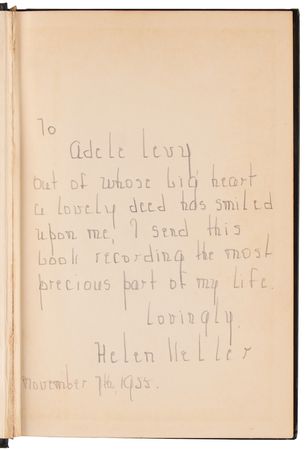 To
Adele Levy
out of whose big heart
a lovely deed has smiled
upon me, I send this
book recording the most
precious part of my life.
Lovingly,
Helen Keller
November 7th, 1955.